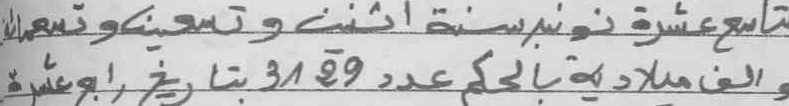 تاسع عشرة نونبر سنة اثنين و تسعين و تسعمائة
و الف ميلادية بالحكم عدد 3129 بتاريخ رابع عشرة